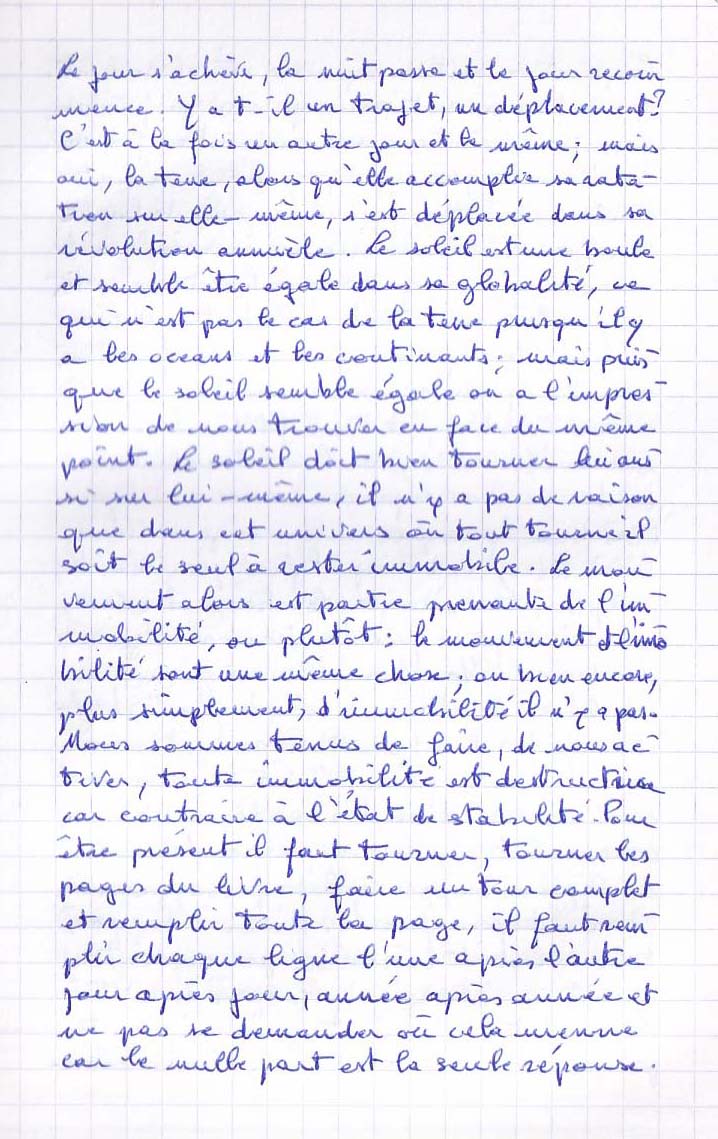 Le jour s'achève, la nuit passe et le jour recom
mence. Y a t-il un trajet, un déplacement?
C'est à la fois un autre jour et le même; mais
oui, la terre, alors qu'elle accomplie sa rota-
tion sur elle-même, s'est déplacée dans sa
révolution annuèle. Le soleil est une boule
et semble être égale dans sa globalité, ce
qui n'est pas le cas de la terre puisqu'il y
a les oceans et les continants; mais puis
que le soleil semble égale on a l'impres
sion de nous trouver en face du même
point. Le soleil doit bien tourner lui aus
si sur lui-même, il n'y a pas de raison
que dans cet univers où tout tourne il
soit le seul à rester immobile. Le mou
vement alors est partie prenante de l'im
mobilité, ou plutôt: le mouvement et l'immo
bilité sont une même chose; ou bien encore,
plus simplement, d'immobilité il n'y a pas.
Nous sommes tenus de faire, de nous ac
tiver, toute immobilité est destructrice
car contraire à l'état de stabilité. Pour
être présent il faut tourner, tourner les
pages du livre, faire un tour complet
et remplir toute la page, il faut rem
plir chaque ligne l'une après l'autre
jour après jour, année après année et
ne pas se demander où cela menne
car le nulle part est la seule réponse.